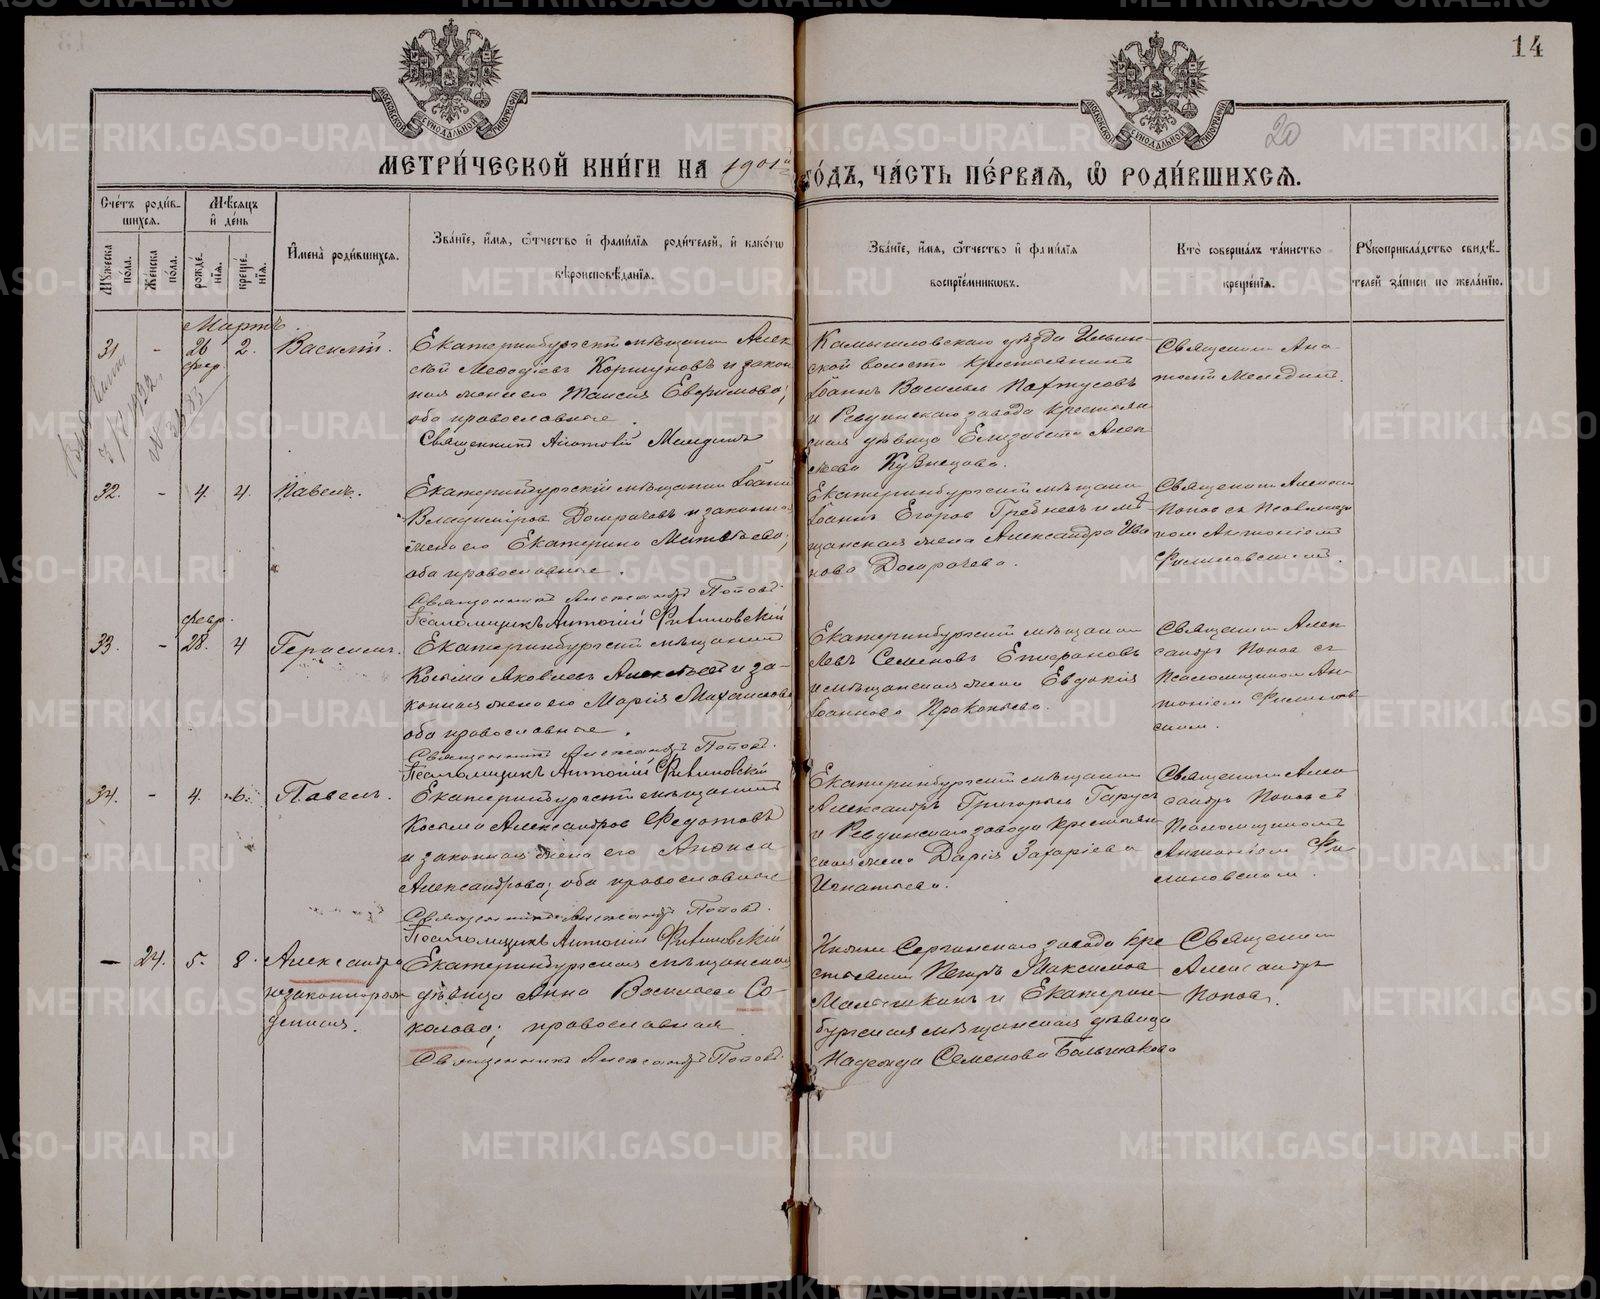 14
20
МЕТРИ́ЧЕСКОЙ КНИ́ГИ НА 1901й ГО́ДЪ, ЧА́СТЬ ПЕ́РВАЯ, Ѡ РОДИ́ВШИХСЯ.
Сче́тъ роди́в-
шихся.
Мѣ́сяцъ
и́ де́нь
Мꙋ́жеска
по́ла.
Же́нска
по́ла.
рожде́-
нїя.
креще́-
нїя.
И҆мена̀ роди́вшихся.
Зва́нїе, и҆́мя, ѻ҆́тчество и҆ фами́лїя роди́телей, и҆ како́гѡ
вѣроисповѣ́данїя.
Зва́нїе, и҆́мя, ѻ҆́тчество и҆ фами́лїя
воспрїе́мникѡвъ.
Кто̀ соверша́лъ та́инство
креще́нїя.
Рꙋкоприкла́дство свидѣ́-
телей за́писи по жела́нїю.
Мартъ.
31 - 26 2. Василій.
февр.
Екатеринбургскій мѣщанин Алек
сѣй Меѳодіев Коршуновъ и закон
ная жена его Таисія Евфимова;
оба православные.
Священникъ
Камышловскаго уѣзда Ильин-
ской волости крестьянинъ
Іоаннъ Васильев
и Ревдинскаго завода крестьян
ская дѣвица Елизавета Алек
сѣева Кузнецова.
Священник Ана
32. - 4. 4. Павелъ.
Екатеринбургскій мѣщанин Іоанн
Владиміров Домрачевъ и законная
жена его Екатерина Матвѣева;
оба православные.
Священникъ Александръ Поповъ.
Псаломщикъ Антоній Филиновскій
Екатеринбургскій мѣщанин
Іоаннъ Егоров Гребневъ и мѣ
щанская жена Александра Ива
нова Домрачева.
Священник Алексан
Попов съ Псаломщи
ком Антоніем
Филиновским.
февр.
33. - 28. 4 Герасимъ.
Екатеринбургскій мѣщанин
Косьма Яковлев Алексѣев и за-
конная жена его Марія Михайлова,
оба православные.
Священникъ Александръ Поповъ.
Псаломщикъ Антоній Филиновскій
Екатеринбургскій мѣщанин
Левъ Семеновъ Епифановъ
и мѣщанская жена Евдокія
Іоаннова Прокопьева.
Священник Алек
сандръ Попов съ
Псаломщиком Ан-
тоніем Филинов
ским.
34. - 4. 6. Павелъ.
Екатеринбургскій мѣщанин
Косьма Александров Федотовъ
и законная жена его Анфиса
Александрова; оба православные
Священникъ Александръ Поповъ.
Псаломщикъ Антоній Филиновскій
Екатеринбургскій мѣщанин
Александръ Григорьев
и Ревдинскаго завода крестьян
ская жена Дарія Захаріева
Игнатьева.
Священник Алек
сандръ Попов съ
Псаломщиком
Антоніем Фи-
линовским.
— 24. 5. 8. Александра
незаконнорож
денная.
Екатеринбургская мѣщанская
дѣвица Анна Васильева Со-
колова; православная
Священникъ Александръ Поповъ.
Нижне Сергинскаго завода кре
стьянин Петръ Максимов
Малышкинъ и Екатерин-
бургская мѣщанская дѣвица
Надежда Семенова Большакова
Священник
Александръ
Попов.
METRIKI.GASO-URAL.RU